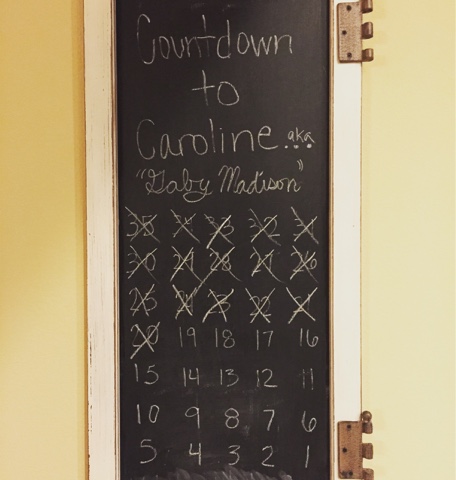 Countdown
to
Caroline... aka
"Gaby Madison"
35 34 33 32 31
30 29 28 27 26
25 24 23 22 21
20 19 18 17 16
15 14 13 12 11
10 9 8 7 6
5 4 3 2 1